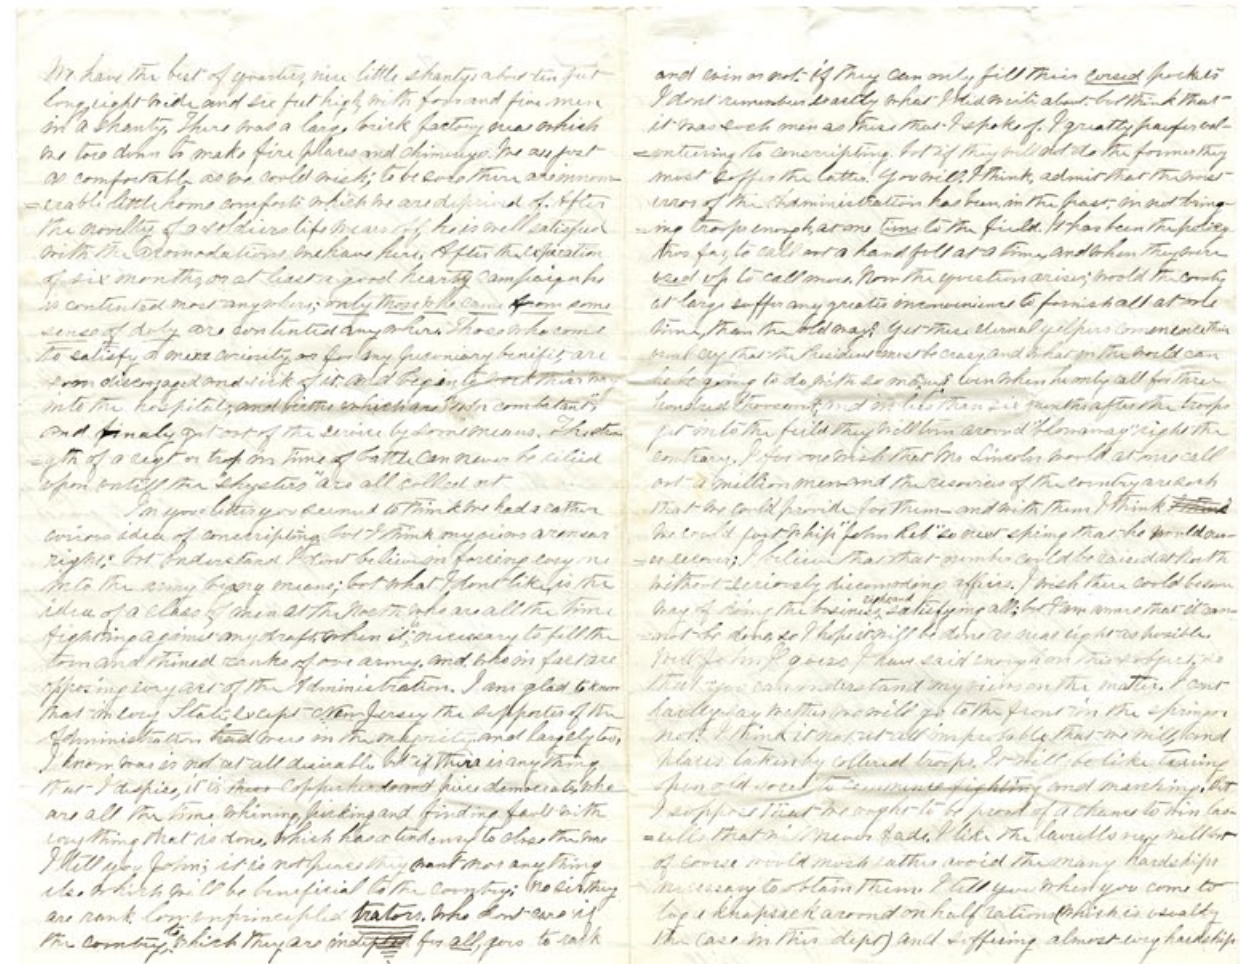 We have the best of quarters, nice little shantys about ten feet
long, eight wide and six feet high, with four and five men
in a shanty. There was a large brick factory near which
we tore down to make fire places and chimneys. We are just
as comfortable as we could wish; to be sure there are innum-
=erable little home comforts which we are deprived of. After
the novelty of a soldiers life wears off he is well satisfied
with the accomodations we have here. After the expiration
of six months or at least a good hearty campaign he
is contented most anywhere; only those who came from some
sense of duty are contented anywhere. Those who come
to satisfy a mere curiosity or for any pecuniary benifit are
soon discouraged and sick of it and begin to work their way
into the hospitals, and births which are "non combatant",
and finaly get out of the service by some means. The stren
=gth of a regt or troop in time of battle can never be relied
upon untill the "shysters" are all culled out
In your letter you seemed to think we had a rather
curious idea of conscripting but I think my views are near
right; but understand I dont believe in forcing every one
into the army by any means; but what I dont like, is the
idea of a class of men at the North who are all the time
fighting against any draft when it is necessary to fill the
torn and thined ranks of our army, and who in fact are
opposing every act of the Administration. I am glad to know
that in every State except New Jersey the supporters of the
Administration were in the majority and largely too.
I know war is not at all desirable but if there is anything
that I despise, it is those Copperheads and peace democrats, who
are all the time whining, kicking and finding fault with
everything that is done, which has a tendency to close the war
I tell you John; it is not peace they want nor any thing
else which will be beneficial to the country; no sir they
are rank low unprincipled traitors. who dont care if
the country to which they are indepted for all, goes to rack
and ruin or not if they can only fill their cursed pockets
I dont remember exactly what I did write about but think that
it was such men as these that I spoke of. I greatly prefer vol-
=untiering to conscripting. but if they will not do the former they
must suffer the latter. You will, I think, admit that the worst
error of the Administration has been, in the past, in not bring-
=ing troops enough at one time to the field. It has been the policy
thus far to call out a hand full at a time, and when they were
used up to call more. Now the question arises; would the country
at large suffer any greater inconvenience to furnish all at one
time, than the old way? Yet these eternal yelpers commence their
usual cry that the President must be crazy, and what in the world can
he be going to do with so many; even when he only call for three
hundred thousand; and in less than six months after the troops
get into the field they will turn around & right the
contrary. I for one wish that Mr Lincoln would at once call
out a million men and the resources of the country are such
that we could provide for them and with them I think
we could just whip "John Reb" so next spring that he would nev-
=er recover; I believe that that number could be raised at North
without seriously discomoding affairs. I wish there could be some
way of doing the business, right and satisfying all; but I am aware that it can-
=not be done, so I hope it will be done as near right as posible.
Well John I guess I have said enough on this subject, so
that you can understand my views on the matter. I cant
hardly say wether we will go to the front in the spring or
not. I think it not at all improbable that we will find
places taken by collered troops. It will be like tearing
open old sores to commence fighting and marching. But
I suppose that we ought to be proud of a chance to win lau-
=rells that we never had. I like the laurells very well but
of course would much rather avoid the many hardships
necessary to obtain them. I tell you when you come to
lug a knapsack around on half rations (which is usualty
the case in this dept) and suffering almost every hardship